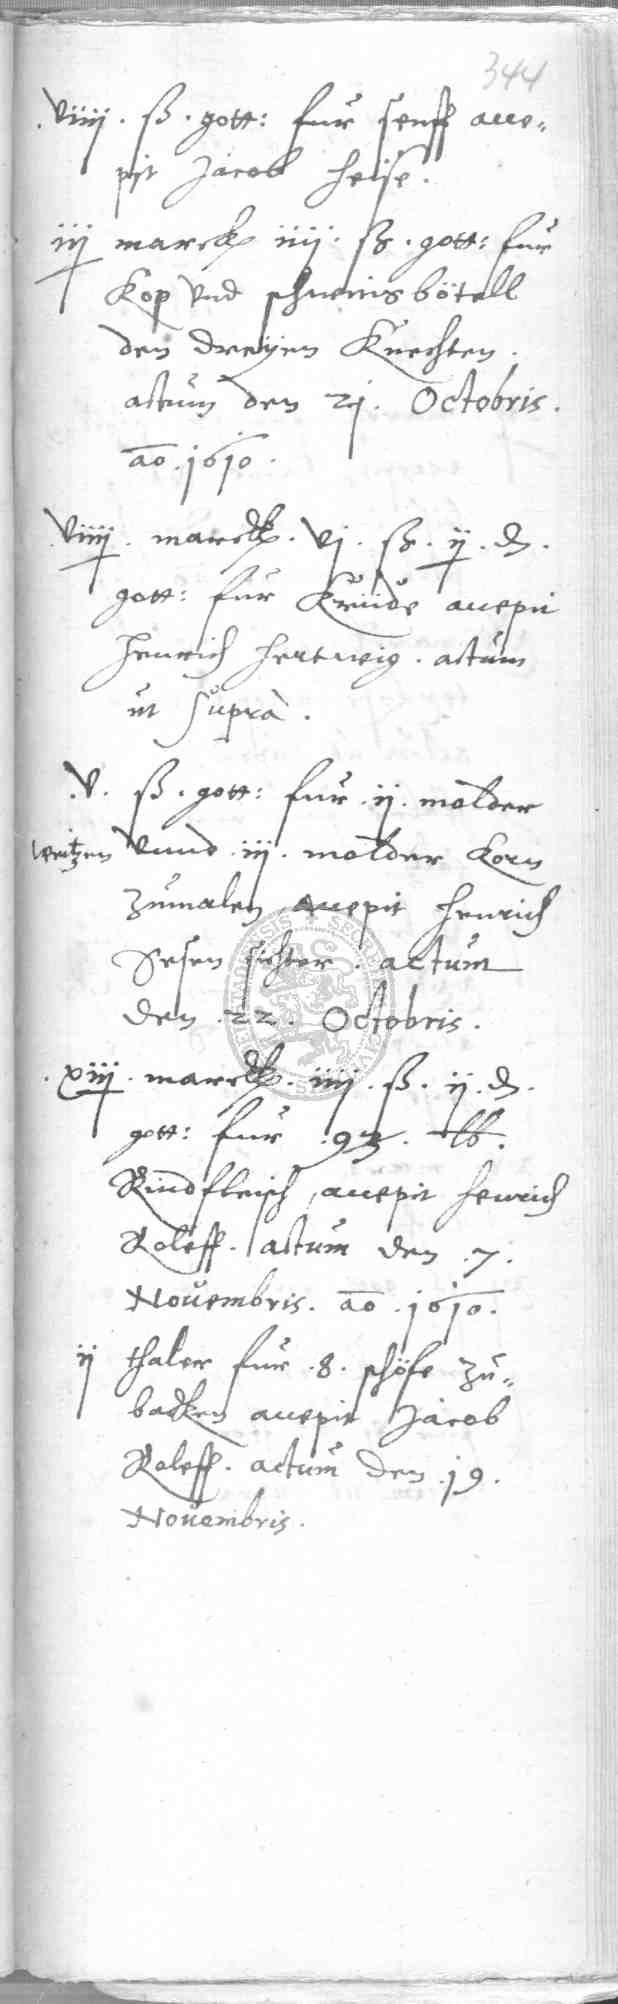 344
. viiij . ß . gott: fur senff acce-
pit Jacob Heise .
iij marck iiij . ß . gott: fur
Kop vnd schweins bötell
den dreyen Knechten .
actum den 21 . Octobris .
ao . 1610 .
viiij . marck . vj . ß . ij . d .
gott: fur Krüde accepit
Henrich Hertwig . actum
ut supra .
. v . ß . gott: fur . ij . molder
weitzen vnnd . iij . molder Korn
zumalen accepit Henrich
Sesen sichter . actum
den . 22 . Octobris .
. xiij . marck . iiij . ß . ij . d .
gott: fur . 93 . lb .
Rindfleisch , accepit Henrich
Roleff . actum den . 7 .
Novembris . ao . 1610 .
ij thaler fur . 8 . schöfe zu-
backen accepit Jacob
Roleff . actum den . 19 .
Novembris .